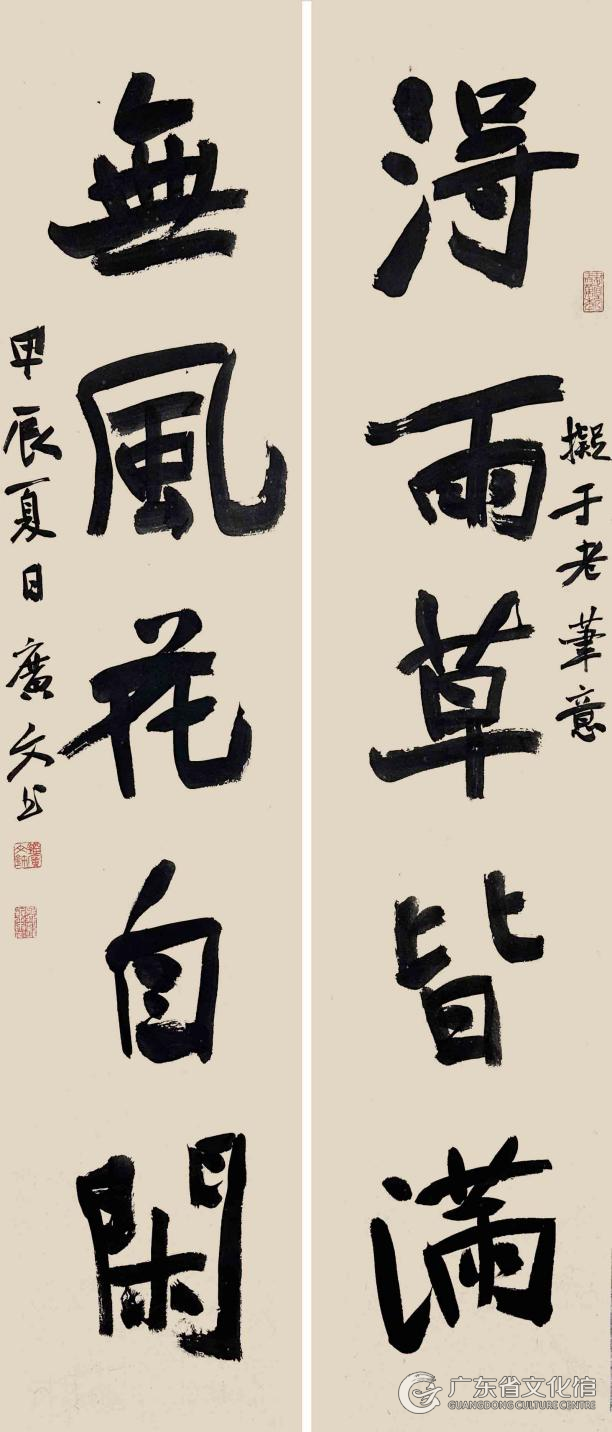 得雨草皆满
擬于老筆意
無風花自閑
甲辰夏日廣文书
广东省文化馆
GUANGDONG CULTURE CENTRE